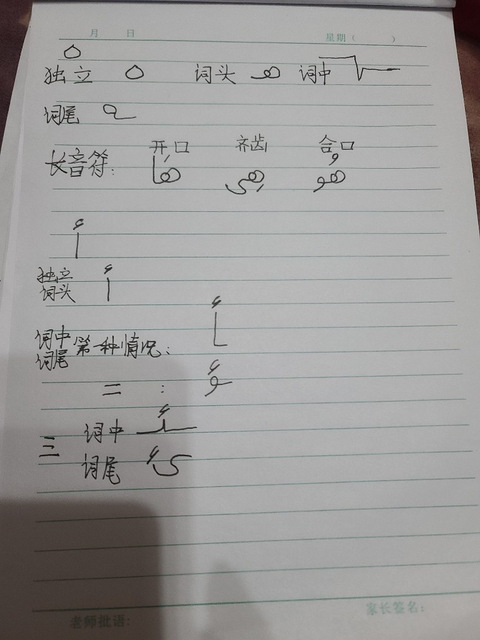 月 日 星期（ ）
ه
独立 ه 词头 هـ 词中 ـهـ
词尾 ـه
开口 齐齿 合口
长音符：
أ
独立
词头 أ
词中
词尾 第一种情况：
二 ：
三 词中 ـئـ
词尾 ئ
老师批语: 家长签名: